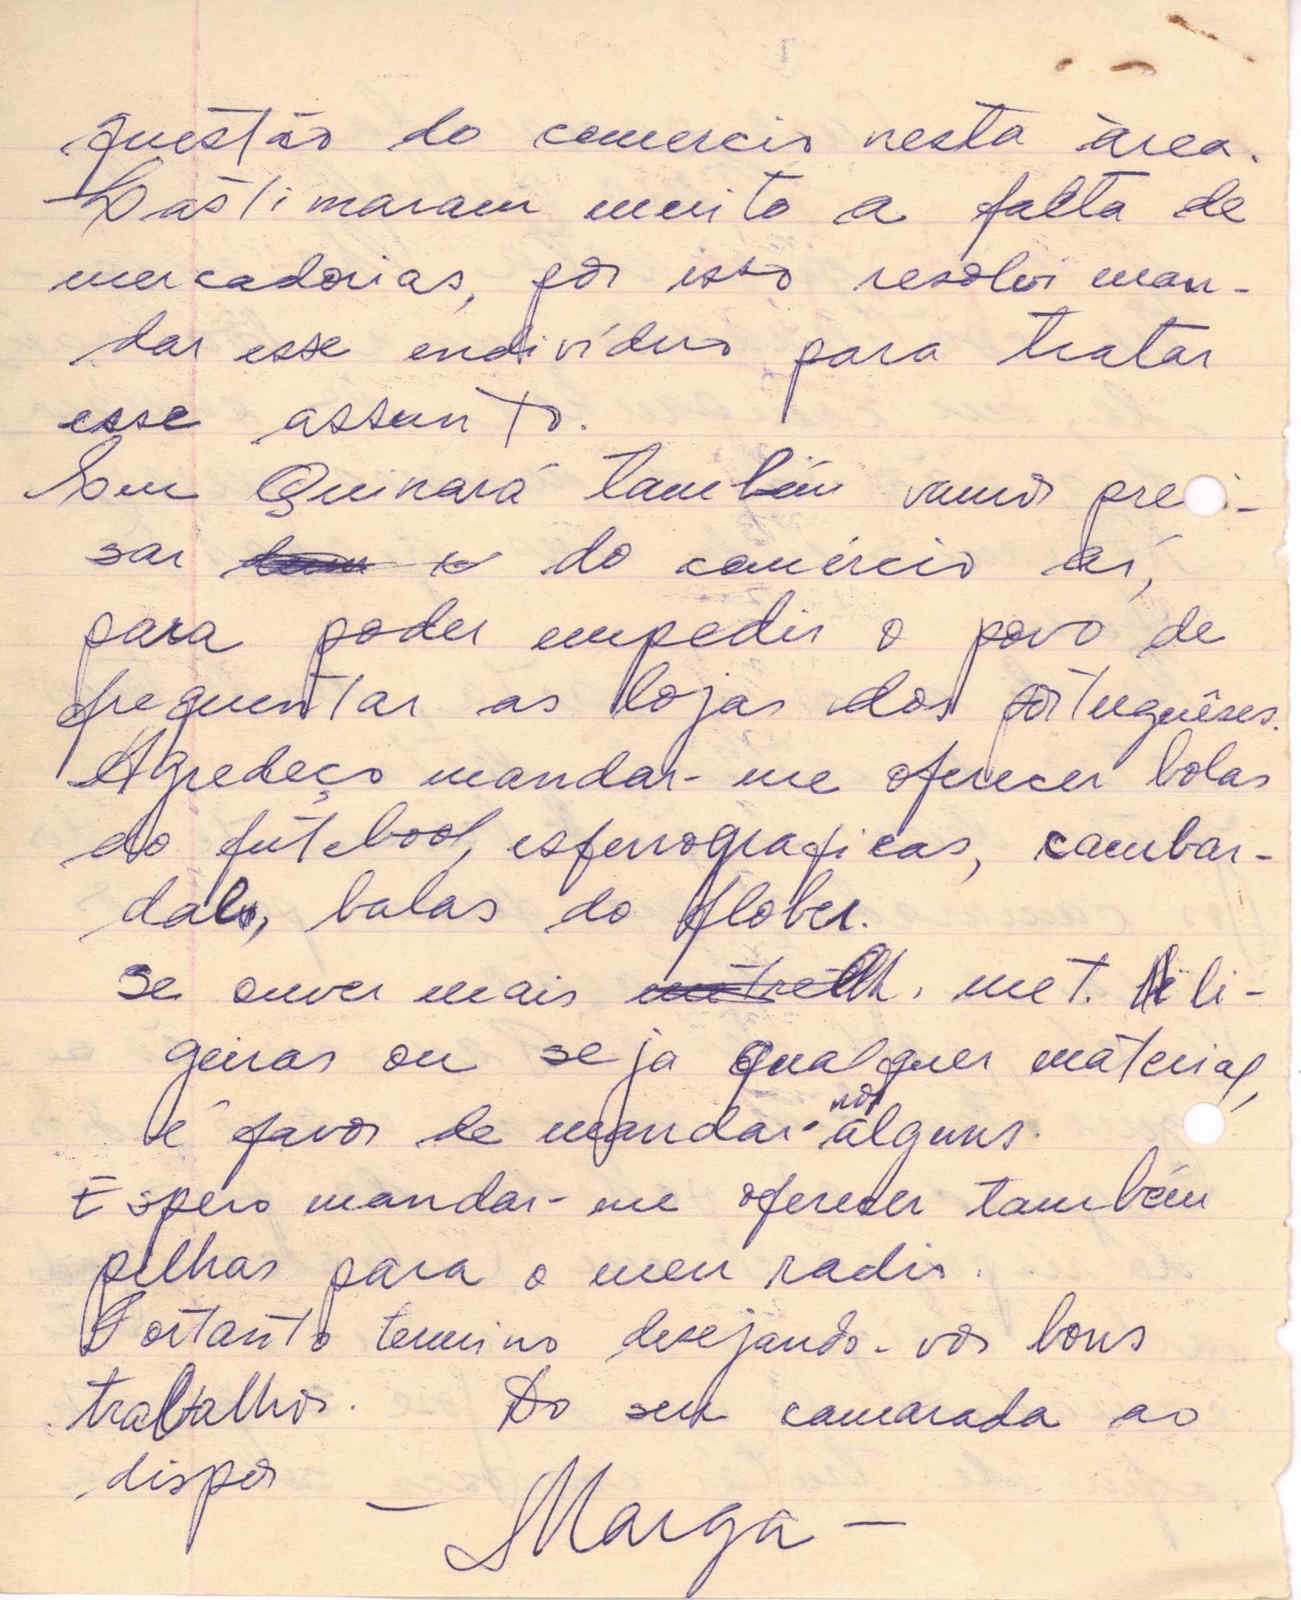 questão do comercio nesta àrea.
Lastimaram muito a falta de
mercadorias, por isso resolvi man-
dar esse endivíduo para tratar
esse assunto.
Em Quinará também vamos preci-
sar do comércio aí,
para poder empedir o povo de
frequentar as lojas dos portuguêses.
Agredeço mandar-me oferecer bolas
do futebool, esferrograficas, cambar-
dalo, balas do flober.
Se ouver mais met. li-
geiras ou seja qualquer material,
é favor de mandar-nos alguns.
Espero mandar-me oferecer também
pilhas para o meu radio.
Portanto termino desejando-vos bons
trabalhos. Do seu camarada ao
dispor
— Marga —